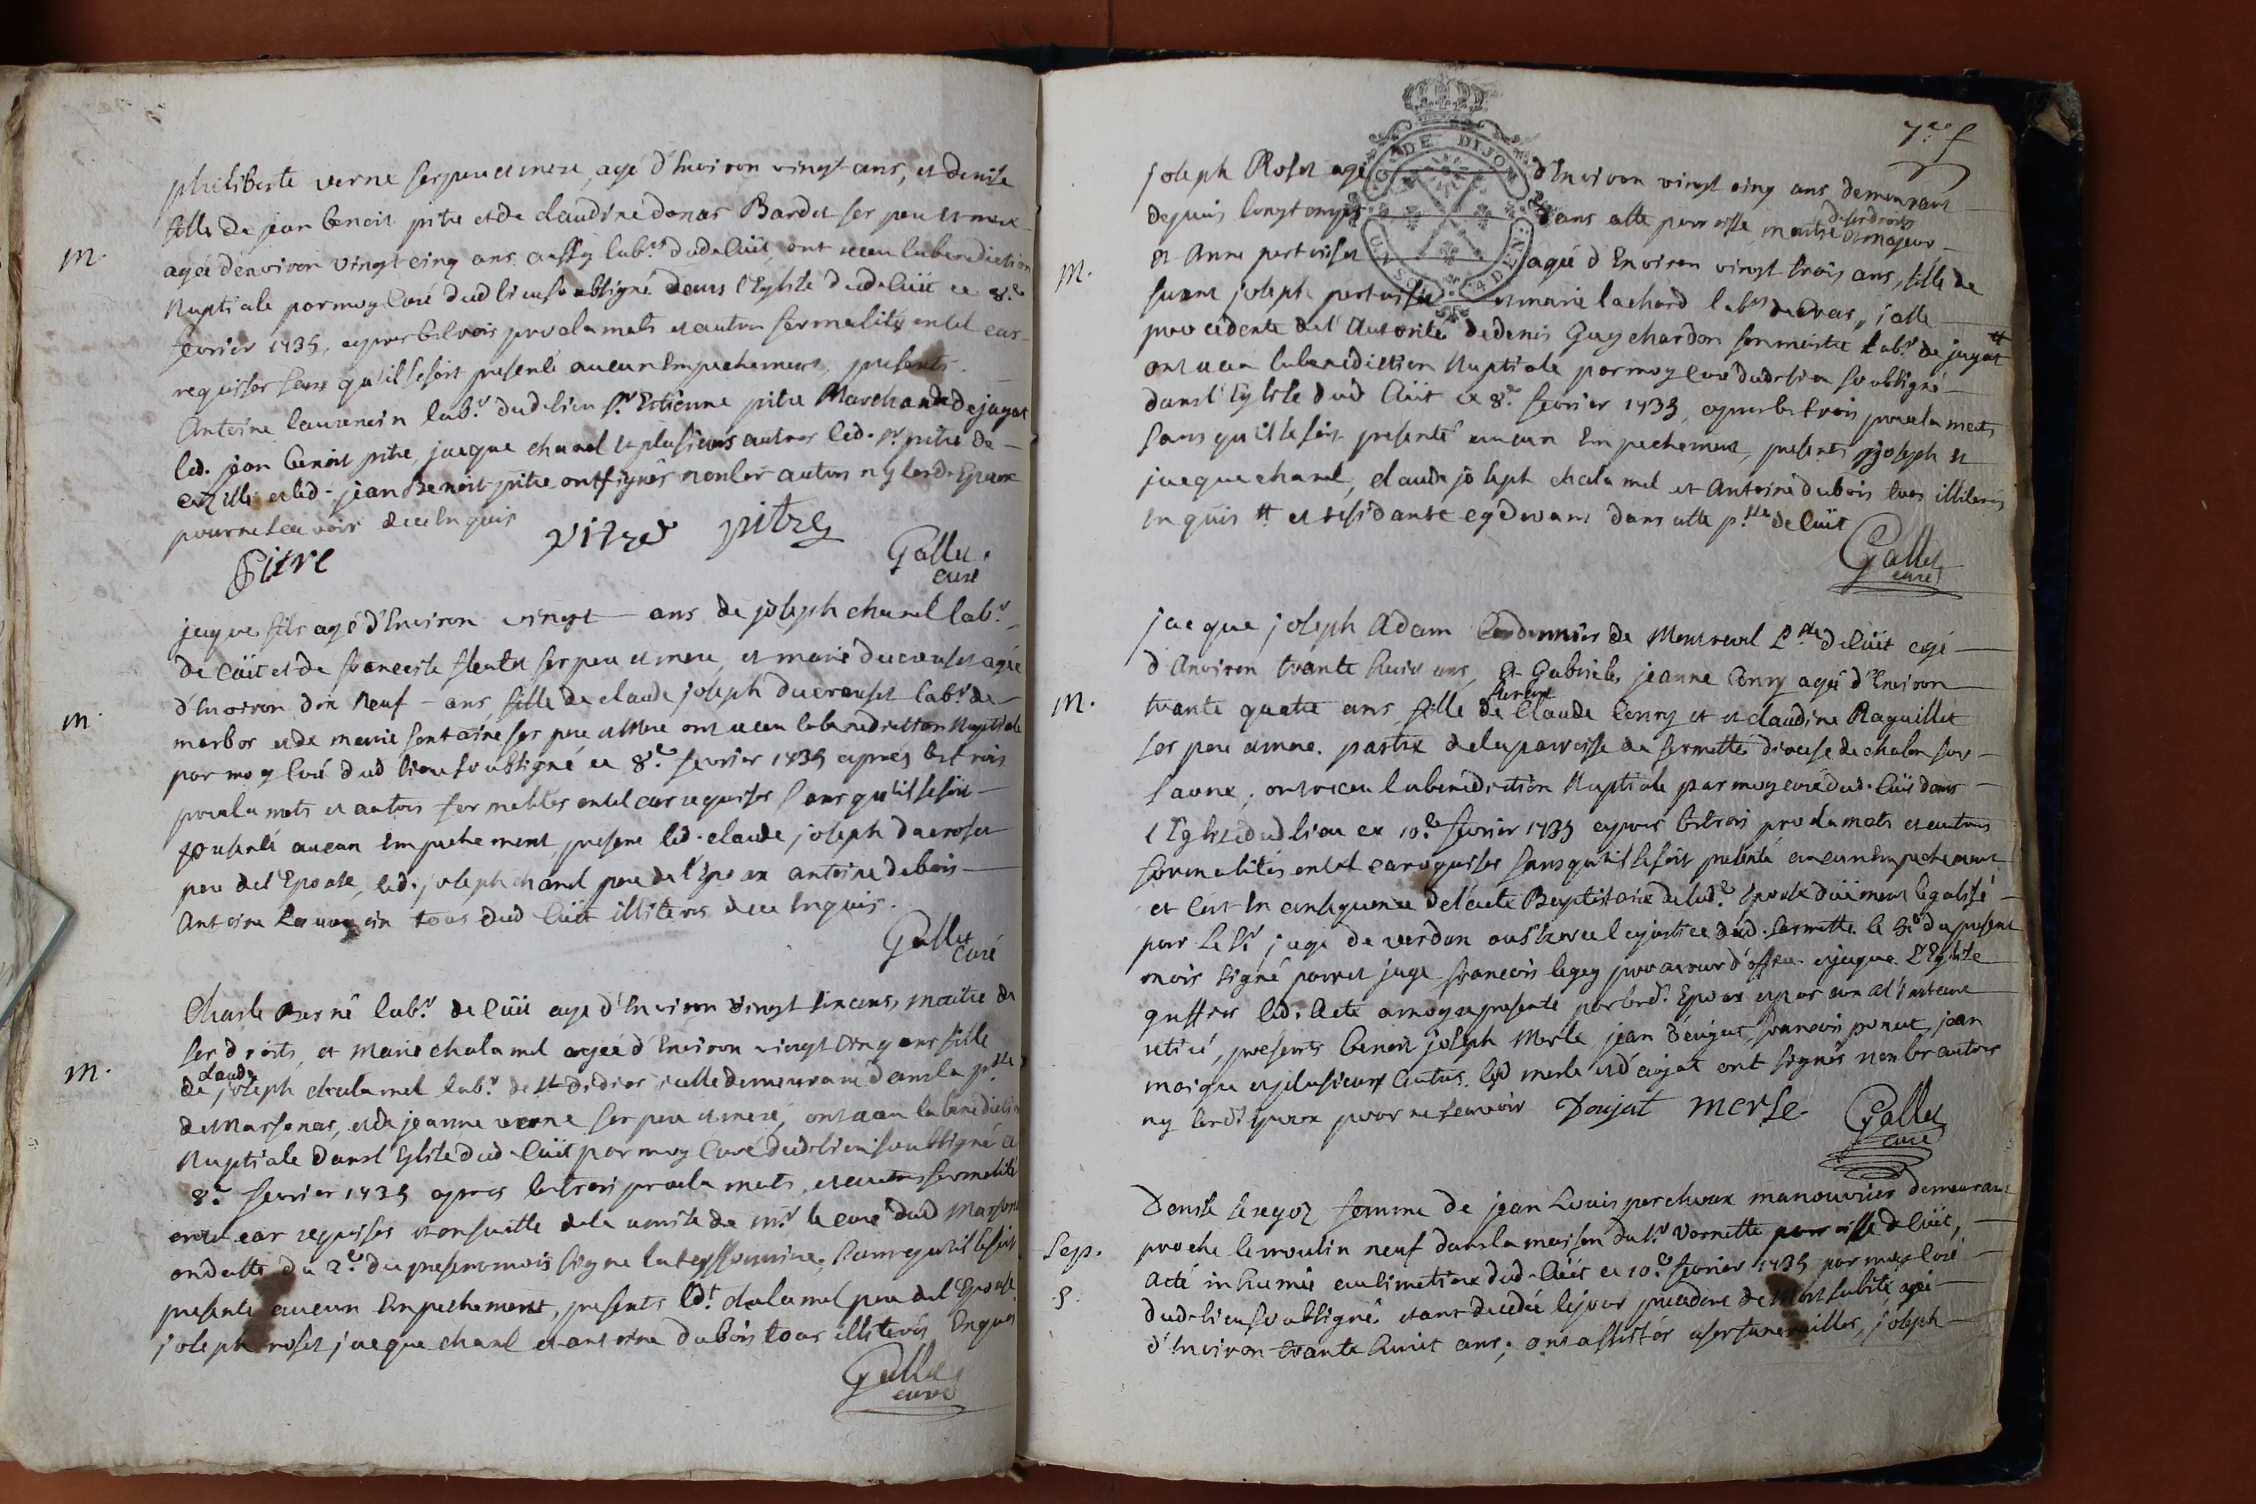 philiberte verne ses pere et mere, agé d'Environ vingt ans, et denise
fille de jean benoit pitre et de claudine donas Bardet ses pere et mere
m.
agée d'environ vingt cinq ans aussy lab.rs dud Cüit ont receu la benediction
Nuptiale par moy Curé dud lieu soubsigné dans l'Eglise dud Cüit ce 8.e
fevrier 1735, apres les trois proclamats et autres formalités en tel cas
requises sans qu'il se soit presenté aucun Empechement, presents
Antoine laurencin lab.r dud lieu s.r Estienne pitre Marchand de jugat
led. jean benoit pitre, jacque chanel et plusieurs autres led. s.r pitre de
et led. jean Benoit pitre ont signés non les autres ny lesd. Epoux
pour ne sçavoir de ce Enquis
Pitre pitre pitre Gallet
curé
jaque fils agé d'Environ vingt ans de joseph chanel lab.r
de Cüit et de francoise ses pere et mere, et marie ducrouset agée
d'Environ dix Neuf ans fille de claude joseph ducrouset lab.r de
m.
marbos et de marie fontaine ses pere et Mere ont receu la benediction Nuptiale
par moy Curé dud lieu soubsigné ce 8.e fevrier 1735 aprés les trois
proclamats et autres formalités en tel cas requises sans qu'il se soit
presenté aucun Empechement, present led. claude joseph ducroset
pere de l'Epouse, led. joseph chanel pere de l'Epoux antoine dubois
Antoine laurencin tous dud Cüit illiteres de ce Enquis.
Gallet
Curé
Charle Berné lab.r de Cüit agé d'Environ vingt cinc ans, maitre de
ses droits, et Marie chalamel agée d'Environ vingt cinq ans fille
claude
m.
de joseph chalamel lab.r de St didier, icelle demeurant dans la p.sse
de Marsonas, et de jeanne verne ses pere et mere, ont receu la benediction
Nuptiale dans l'Eglise dud Cüit par moy Curé dud lieu soubsigné ce
8.e fevrier 1735 apres les trois proclamats, et autres formalités
en tel cas requises et ensuitte de la remise de m.r le curé dud Marsonas
en datte du 2.e du present mois signé sans qu'il se soit
presenté aucun Empechement, presents led.t chalamel pere de l'Epouse
joseph roset jacque chanel et antoine dubois tous illiterés Enquis
Gallet
curé
7.e f
joseph Roset agé d'Environ vingt cinq ans demeurant
G. DE DIJON
depuis longtemps dans cette parroisse, maitre de ses droits et majeur
m.
et Anne pertuiset agée d'Environ vingt trois ans, fille de
furent joseph pertuiset et marie lachard lab.rs de cras, icelle
procedente de l'Autorité de denis Guychardon son maitre lab.r de jugat #
ont receu la benediction Nuptiale par moy Curé dud lieu soubsigné
dans l'Eglise dud Cüit ce 8.e fevrier 1735, apres les trois proclamats
sans qu'il se soit presenté aucun Empechement, presents joseph et
jacque chanel, claude joseph chalamel et Antoine dubois tous illiteres
Enquis # et residante cydevant dans cette p.sse de Cüit
Gallet
curé
jacque joseph Adam Cordonnier de Montreval P.sse de Cüit agé
d'Environ trante huit ans, Et Gabriele jeanne Conry agée d'Environ
furent
m.
trante quatre ans fille de Claude Conry et et claudine Raguillet
ses pere et mere. partie de la paroisse de sermette diocese de chalon sur
saone, ont receu la benédiction Nuptiale par moy curé dud. Cüit dans
l'Eglise dud lieu ce 10.e fevrier 1735 apres les trois proclamats et autres
formalités en tel cas requises sans qu'il se soit presenté aucun Empechement
et c'est En consequence de l'acte Baptistaire de lad.e Epouse düement legalisé
par Le S.r juge de verdun ou s'Exerce la justice dud. sermette le 3.e du present
mois signé juge francois legey procureur d'office et jaque L'Eglise
greffier led. Acte a moy representé par lesd. Epoux et par eux a l'instant
retiré, presents benoit joseph Merle jean deujat, francois jean
et plusieurs autres. led merle et deujat ont signés non les autres
ny lesd. Epoux pour ne scavoir Doujat merle Gallet
curé
Denise femme de jean Louis percheux manouvrier demeurant
Sep.
proche le moulin neuf dans la maison du s.r Vernette parroisse de Cüit,
5.
a eté inhumée au Cimetiere dud. Cüit ce 10.e fevrier 1735 par moy Curé
dud. lieu soubsigné etant decedée le jour precedent de Mort subite agée
d'Environ trante huit ans, ont assistés a ses funerailles, joseph